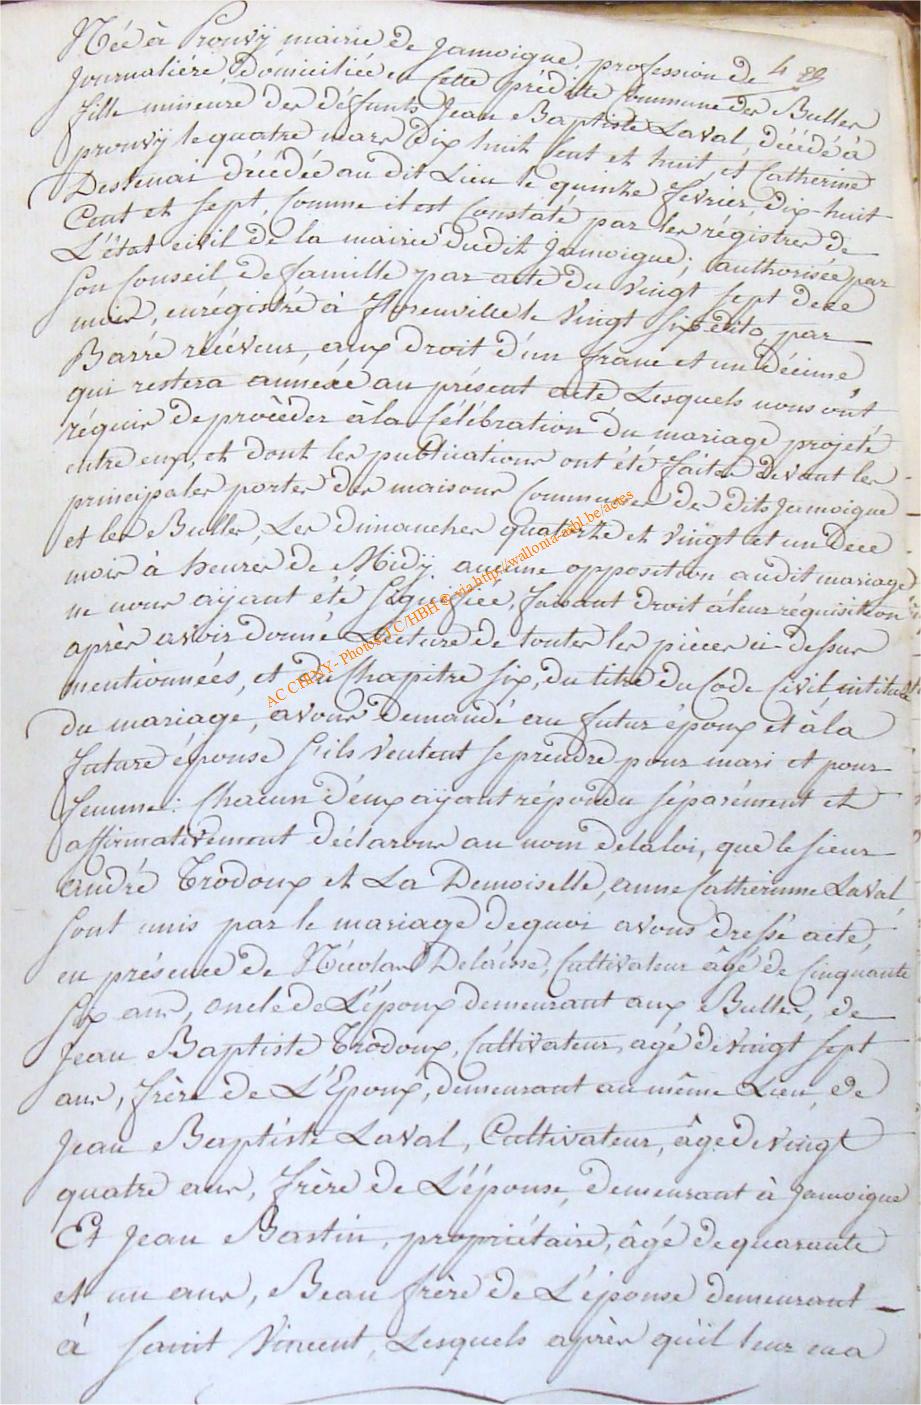 Née à Prouvÿ mairie de Jamoigne, profession de
Journaliére, domiciliée en cette préditte Commune des Bulles
fille mineure des défunts Jean Baptiste Laval, décédé à
prouvÿ le quatre mars dix huit cent et huit, et Catherine
décédée au dit Lieu le quinze fevrier dix-huit
Cent et sept, comme il est constaté par les régistres de
L'état civil de la mairie dudit Jamoigne; authorisée par
son conseil de famille par acte du vingt sept de ce
mois, enrégistré à florenville le vingt six dito, par
Barré réceveur, aux droit d'un franc et un décime
qui restera annexé au présent acte Lesquels nous ont
réquis de procèder à la Célébration du mariage projeté
entre eux, et dont les publications ont été faites devant les
principales portes des maisons Communes de dits Jamoigne
et les Bulles, Les dimanches quatorze et vingt et un de ce
mois à heures de Midÿ. aucune opposition audit mariage
ne nous aÿant été signifiée, faisant droit à leur réquisition
après avoir donné Lecture de toutes les pièces ci-dessus
mentionnées, et du Chapitre six, du titre du Code Civil, intitulé
du mariage, avons demandé au futur époux et à la
future épouse s'ils veulent se prendre pour mari et pour
femme: Chacun d'eux aÿant répondu séparément et
affirmativement déclarons au nom de la loi, que le sieur
André Trodoux et La Demoiselle, anne Catherinne Laval,
sont unis par le mariage de quoi avons dressé acte,
en présence de Nicolas Delaisse, Cultivateur âgé de Cinquante
six ans, oncle de L'époux demeurant aux Bulles, de
Jean Baptiste Trodoux, Cultivateur, agé de vingt sept
ans, frère de L'Epoux, demeurant au même Lieu, de
Jean Baptiste Laval, Cultivateur, âgé de vingt
quatre ans, frère de L'épouse, demeurant à Jamoigne
Et Jean Bastin, propriétaire, âgé de quarante
et un ans, Beau frère de L'épouse demeurant
à Saint Vincent, Lesquels après qu'il leur en a
AC CHINY - Photos JC/HBH © via http://wallonia-asbl.be/actes